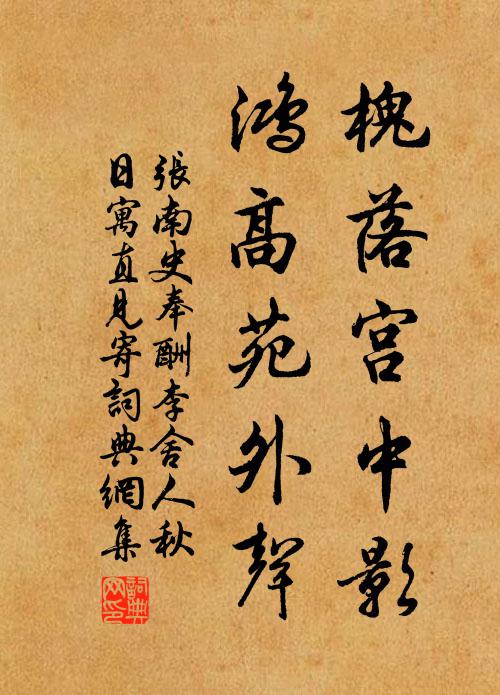 槐落宫中影
鴻高苑外聲
張南史奉酬李舍人秋
日寓直見寄詞典網集
詞典
網印